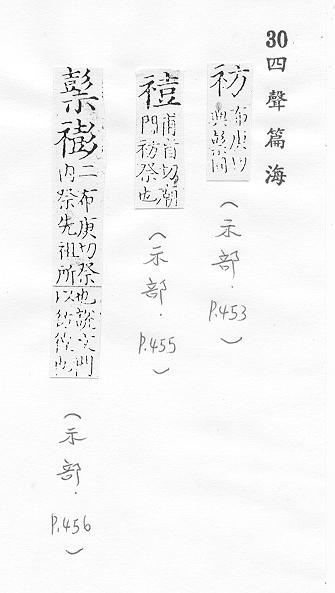 30四聲篇海
祊
布庚切
同
(示部.P.453)
甫盲切廟
門祊祭也
(示部.P.455)
二布庚切祭也說文門
內祭先祖所以
(示部.P.456)